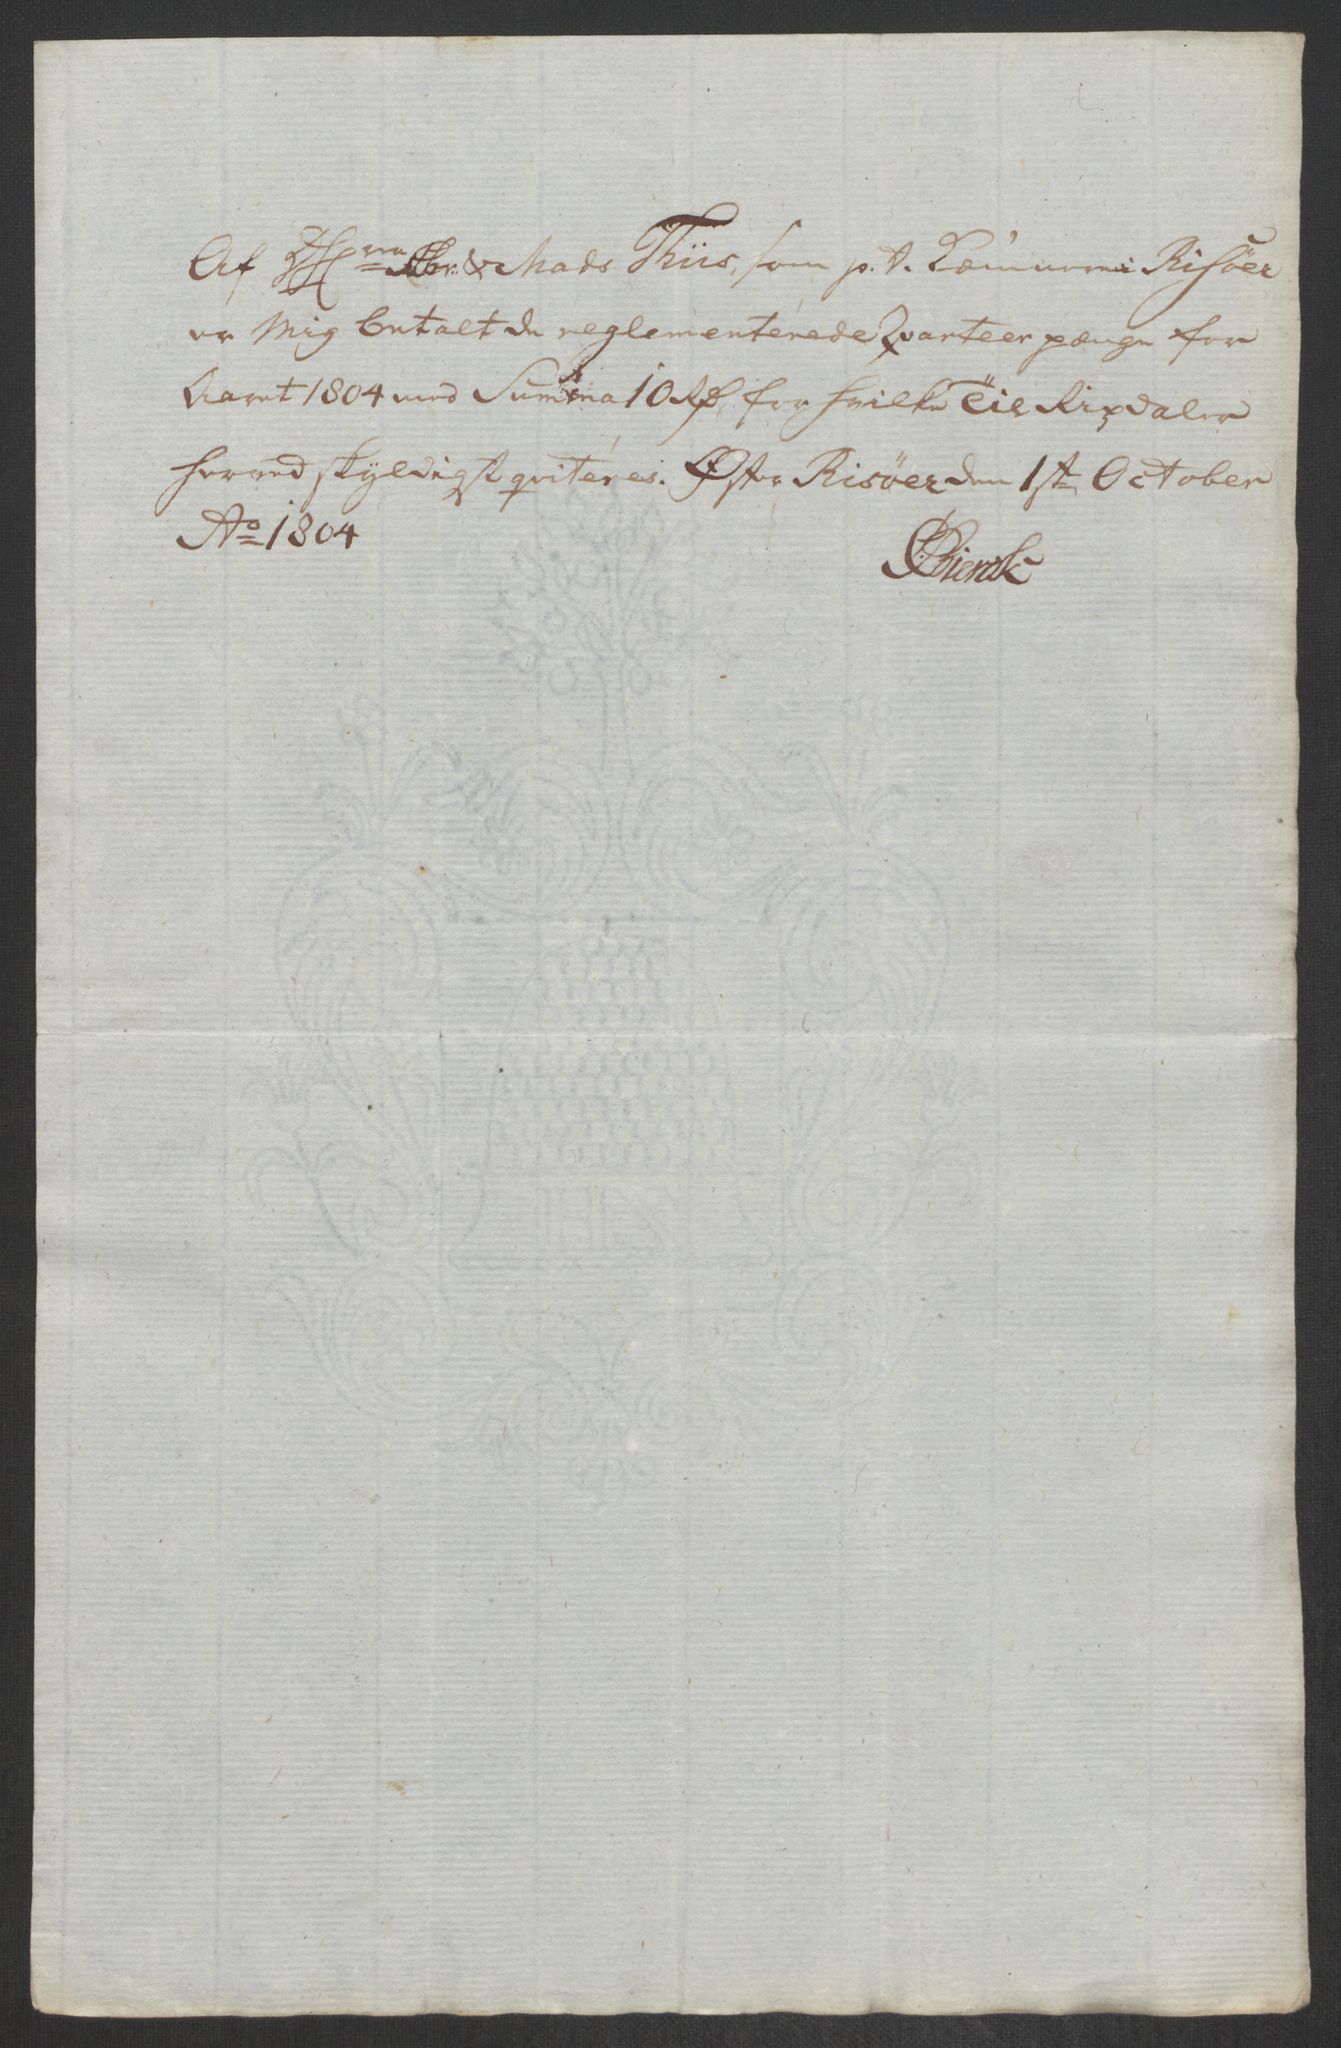 Af HHrrn Abr: & Mads Thiis, som p. t. Kæmnere i Risöer
er Mig betalt de reglementerede Qvarteer penge for
Aaret 1804 med Summa 10 Rd, for hvilke Tie Rixdaler
herved skyldigst qviteres. Øster Risöer den 1ste October
Ao 1804